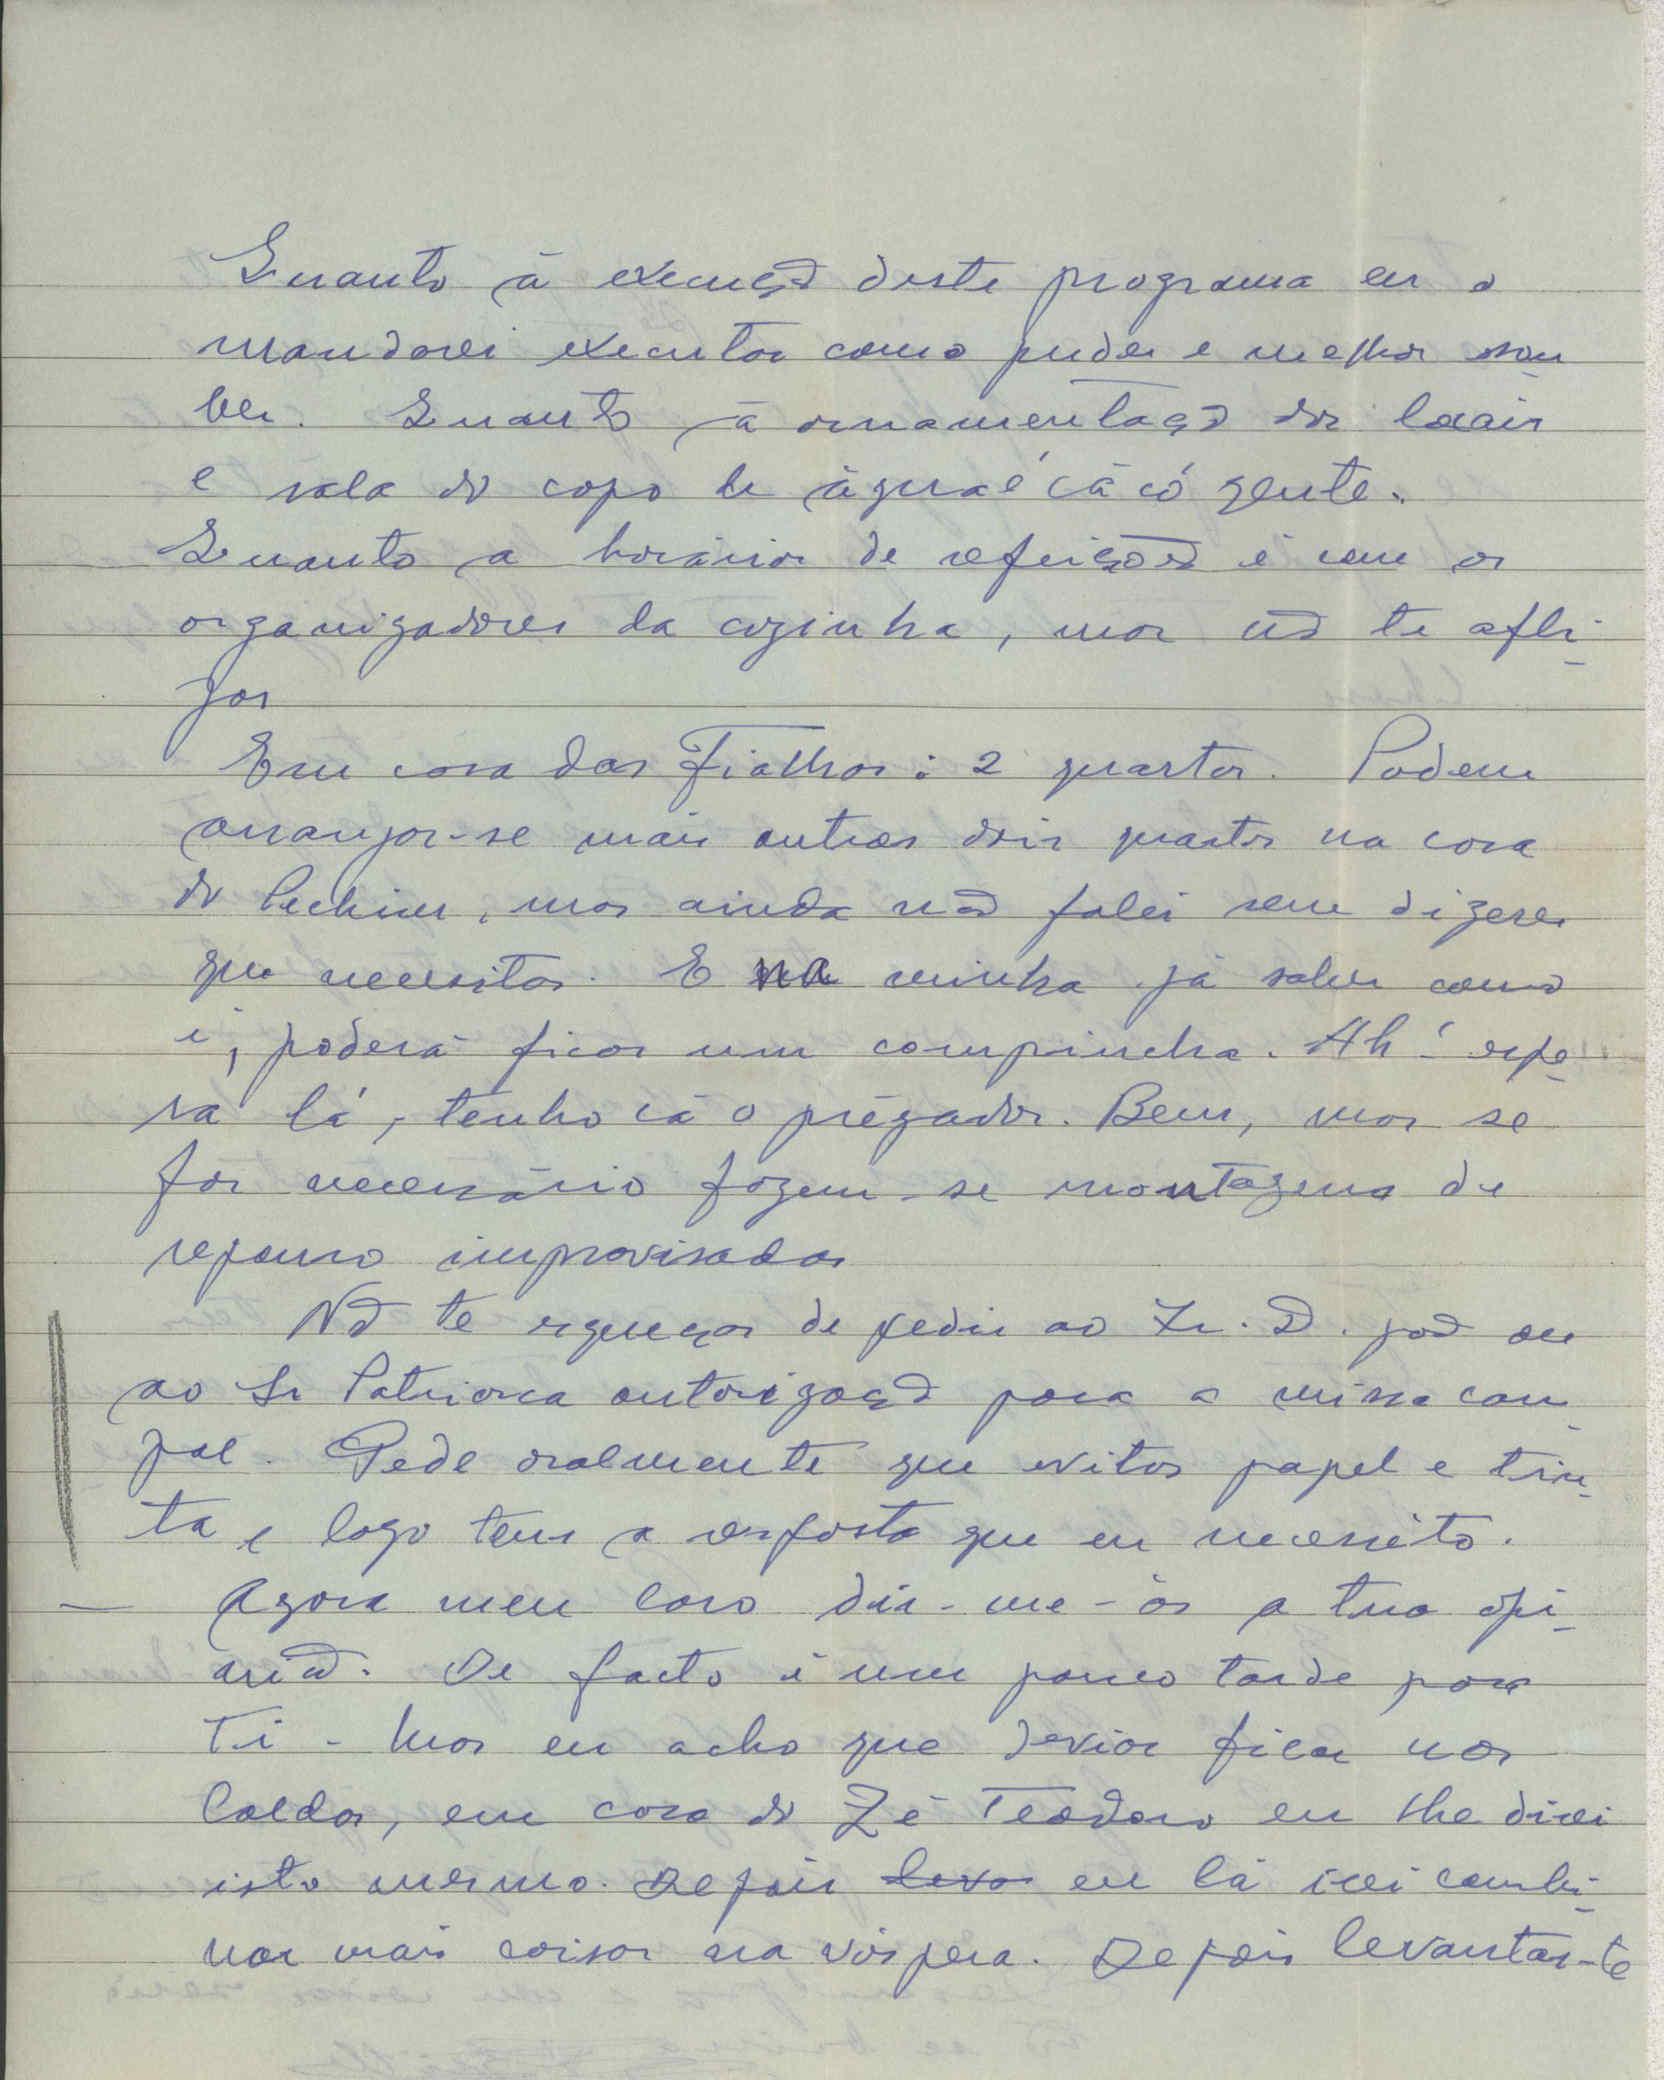 Quanto à execução deste programa eu o
mandarei executar como puder e melhor sou
ber. Quanto à ornamentação dos locais
e sala do copo de água é cá có gente.
Quanto a horários de refeições é com os
organizadores da cozinha, mas não te afli-
jas
Em casa das Fialhas: 2 quartos. Podem
arranjar-se mais outros dois quartos na casa
do Pechim, mas ainda não falei sem dizeres
que necessitas. E na minha já sabes como
é, poderá ficar um compincha. Ah! espe-
ra lá, tenho cá o prégador. Bem, mas se
for necessário fazem-se montagens de
repouso improvisadas
Não te esqueças de pedir ao Sr. D. João ou
ao Sr Patriarca autorização para a missa cam-
pal. Pede oralmente que evitas papel e tin-
ta e logo tens a resposta que eu necessito.
— Agora meu caro dir-me-ás a tua opi-
nião. De facto é um pouco tarde para
ti - Mas eu acho que devias ficar nas
Caldas, em casa do Zé Teodoro eu lhe direi
isto mesmo. Depois levas eu lá irei combi-
nar mais coisas na véspera. Depois levantas-te